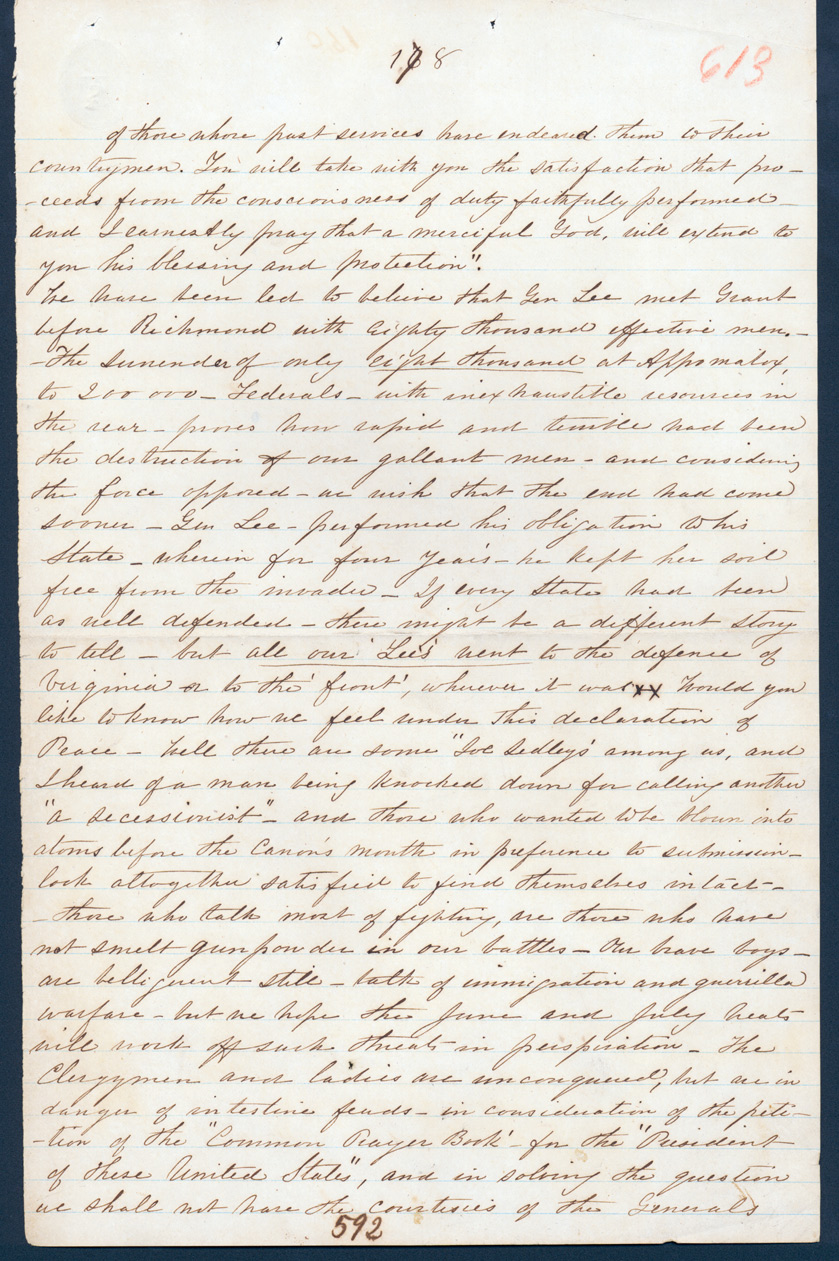 178
613
of those whose past services have endeared them to their
countrymen. You will take with you the satisfaction that pro-
-ceeds from the consciousness of duty faithfully performed-
and I earnestly pray that a merciful God, will extend to
you his blessing and protection".
We have been led to believe that Gen Lee met Grant
before Richmond with Eighty thousand effective men.-
-The surrender of only eight thousand at Appomatox,
to 200 000 - Federals - with inexhaustible resources in
the rear - proves how rapid and terrible had been
the destruction of our gallant men - and considering
the force opposed - we wish that the end had come
sooner - Gen Lee - performed his obligation to his
State - wherein for four years - he kept her soil
free from the invader - If every State had been
as well defended - there might be a different story
to tell - but all our 'Lee's' went to the defence of
Virginia or to the 'front', wherever it was xx Would you
like to know how we feel under this declaration of
Peace - Well there are some "Joe Sedley's' among us, and
I heard of a man being knocked down for calling another
"a secessionist" - and those who wanted to be blown into
atoms before the Canon's mouth in preference to submission -
look altogether satisfied to find themselves intact -
- those who talk most of fighting, are those who have
not smelt gunpowder in our battles - Our brave boys -
are belligerent still - talk of immigration and guerrilla
warfare - but we hope the June and July heats
will work off such threats in perspiration - The
Clergymen and ladies are unconquered, but we in
danger of intestine feuds - in consideration of the peti-
-tion of the "Common Prayer Book' - for the "President
of these United States", and in solving the question
we shall not have the courtesies of the Generals
592